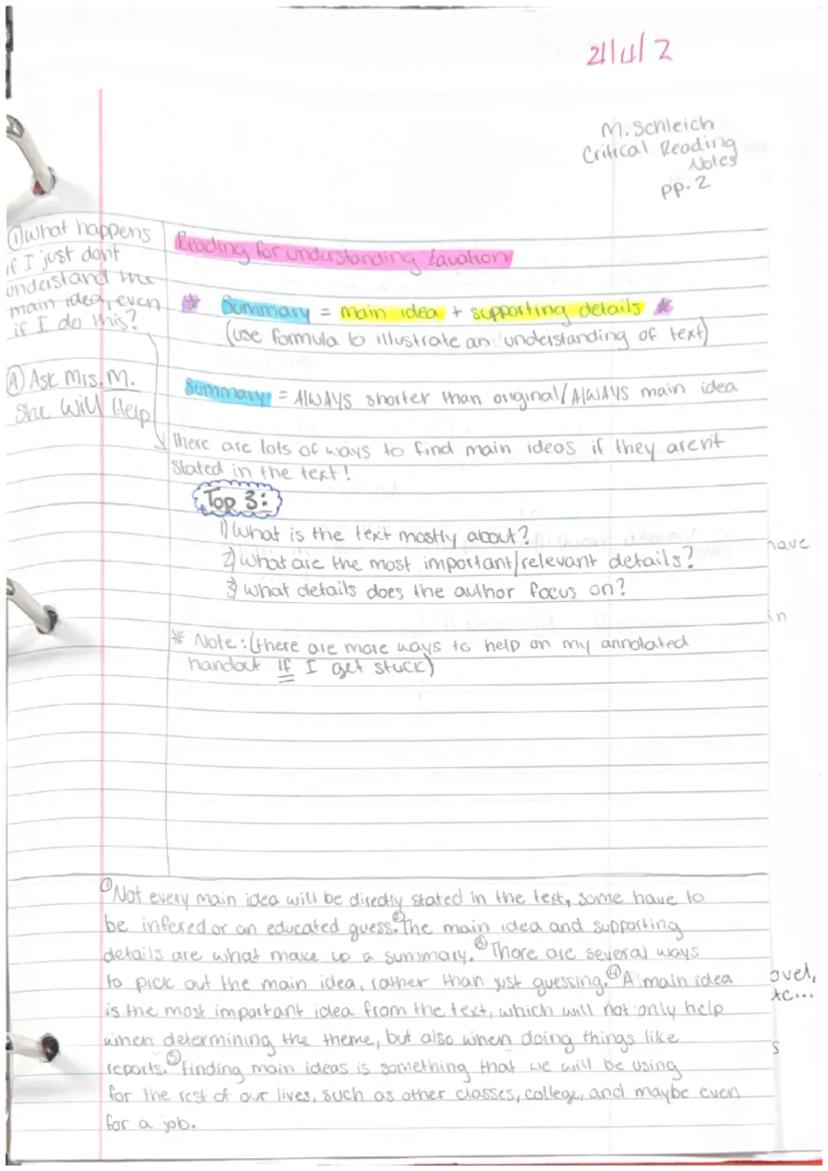 M. Schleich
Critical Reading
Notes
pp. 2
① What happens
if I just don't
understand the
main idea, even
if I do this?
Ⓐ Ask Mrs. M.
She Will Help
Reading for understanding Equation
* Summary = main idea + supporting details *
(use formula to illustrate an understanding of text)
Summary = AlWAYS shorter than original/AlWAYS main idea
there are lots of ways to find main ideas if they aren't
stated in the text!
Top 3:
1) What is the text mostly about?
2) What are the most important/relevant details?
3) What details does the author focus on?
* Note: (there are more ways to help on my annotated
handout if I get stuck)
have
in
① Not every main idea will be directly stated in the text, some have to
be infered or an educated guess. ② The main idea and supporting
details are what make up a summary. ③ There are several ways
to pick out the main idea, rather than just guessing. ④ A main idea
is the most important idea from the text, which will not only help
when determining the theme, but also when doing things like
reports. ⑤ Finding main ideas is something that we will be using
for the rest of our lives, such as other classes, college, and maybe even
for a job.
ovel,
tc...
s